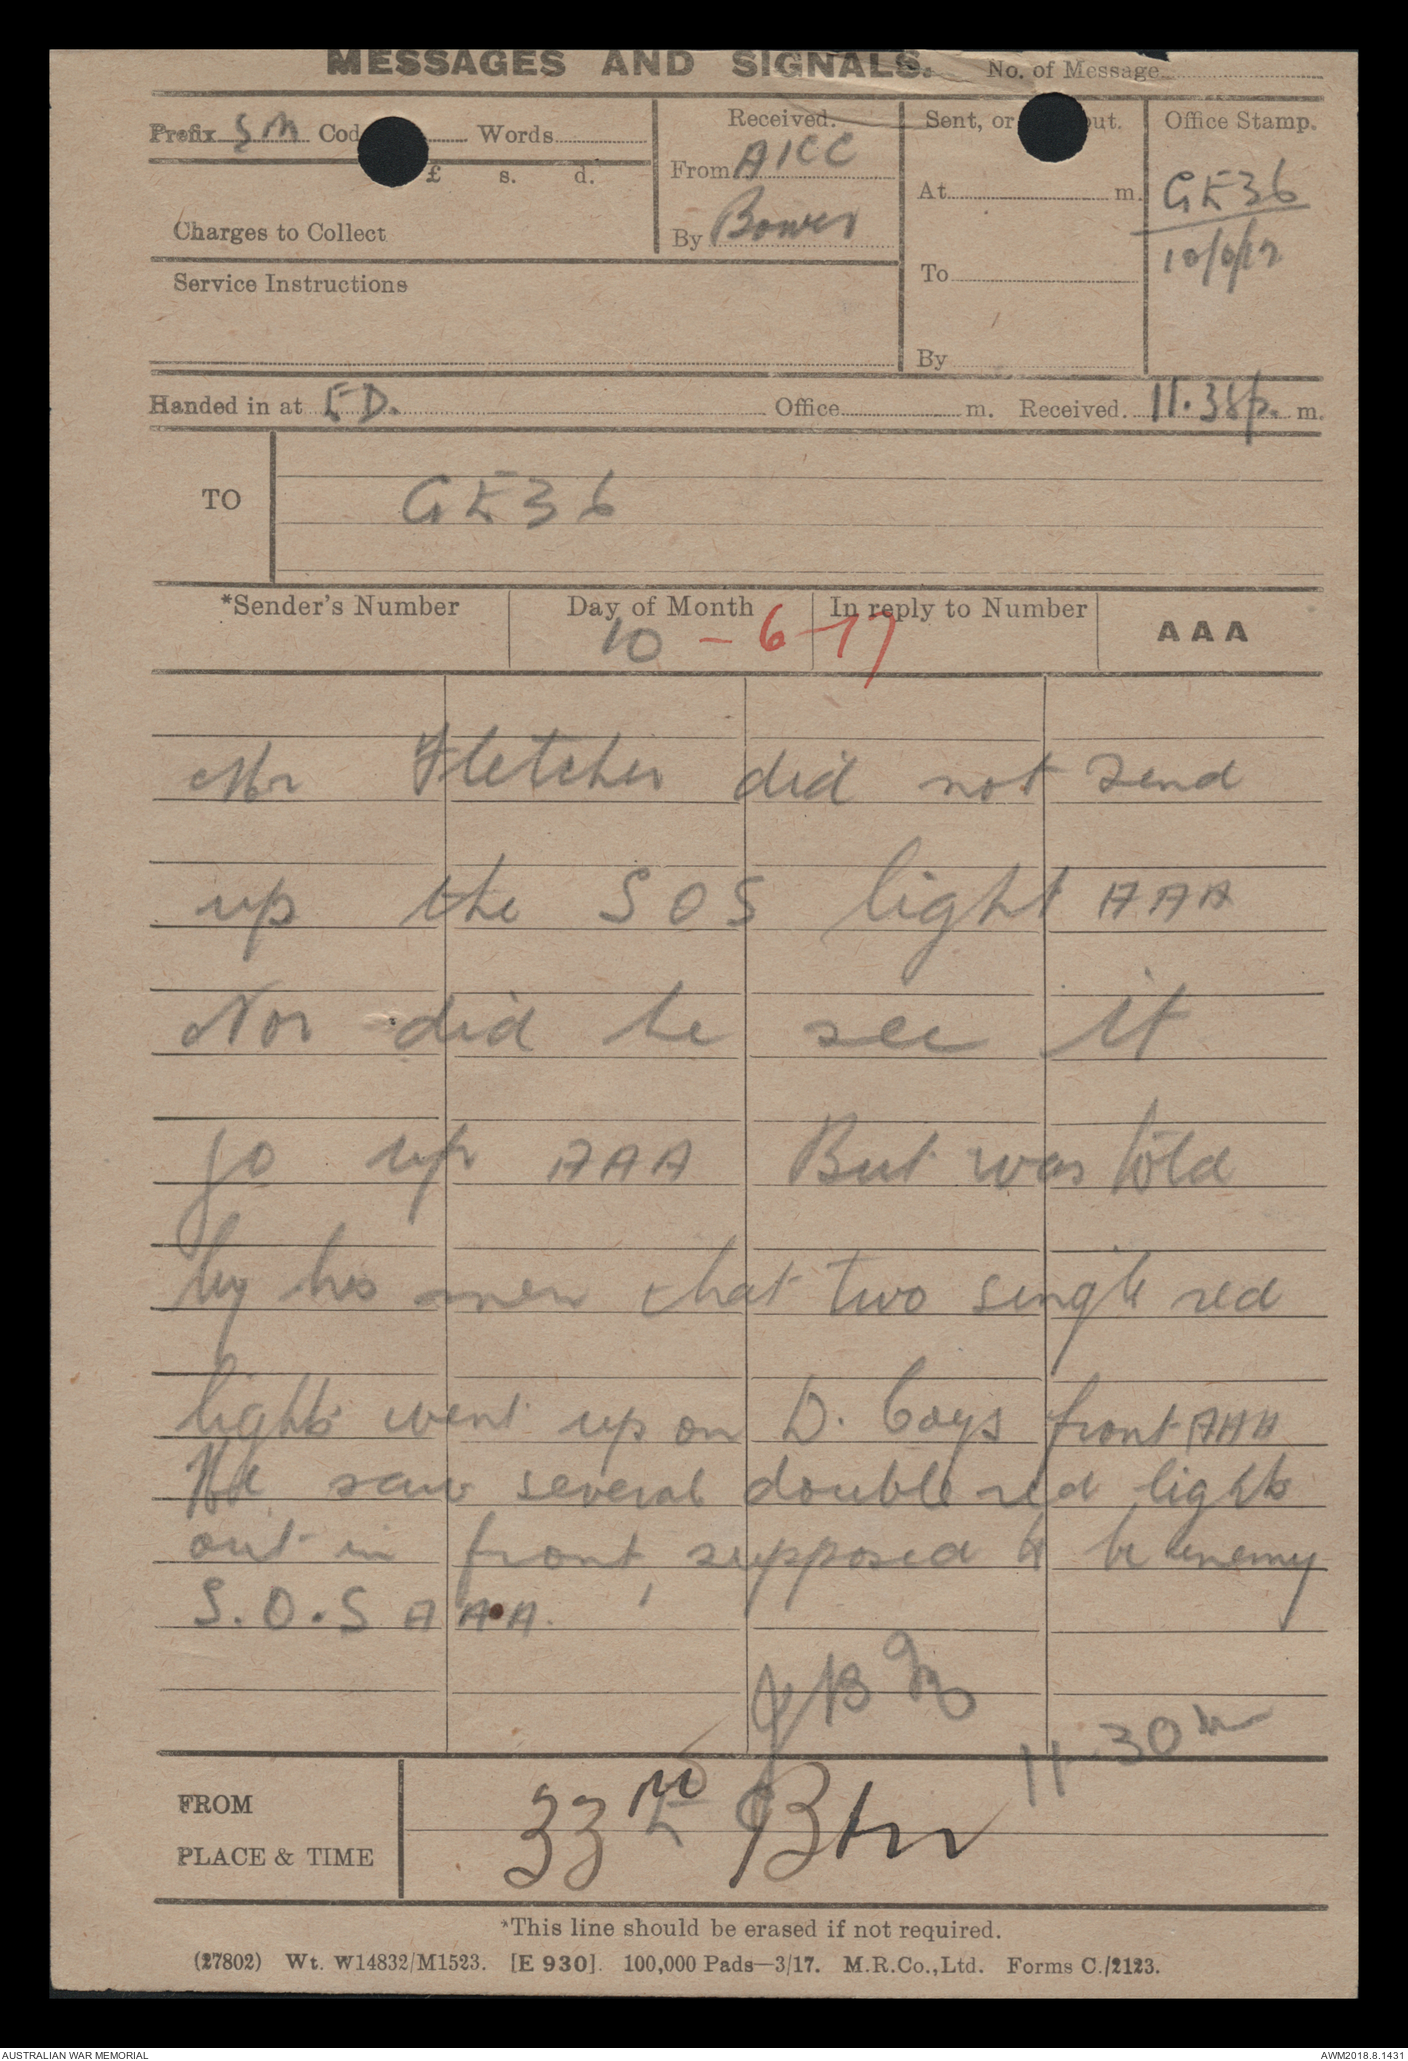 MESSAGES AND SIGNALS. No. of Message
Prefix SM Code Words
£ s. d.
Charges to Collect
Service Instructions
Received.
From AICC
By Bower
Sent, or out.
At m.
To
By
Office Stamp.
GE36
10/6/17
Handed in at ED. Office m. Received. 11.38p. m.
TO GE36
*Sender's Number Day of Month In reply to Number AAA
10 - 6 - 17
Mr Fletcher did not send
up the SOS light AAA
Nor did he see it
go up AAA But was told
by his men that two single red
lights went up on D. Coys front AAA
He saw several double red lights
out in front, supposed to be enemy
S.O.S AAA.
11-30
FROM
PLACE & TIME
33rd Btn
*This line should be erased if not required.
(27802) Wt. W14832/M1523. [E 930]. 100,000 Pads—3/17. M.R.Co.,Ltd. Forms C./2123.
AUSTRALIAN WAR MEMORIAL AWM2018.8.1431